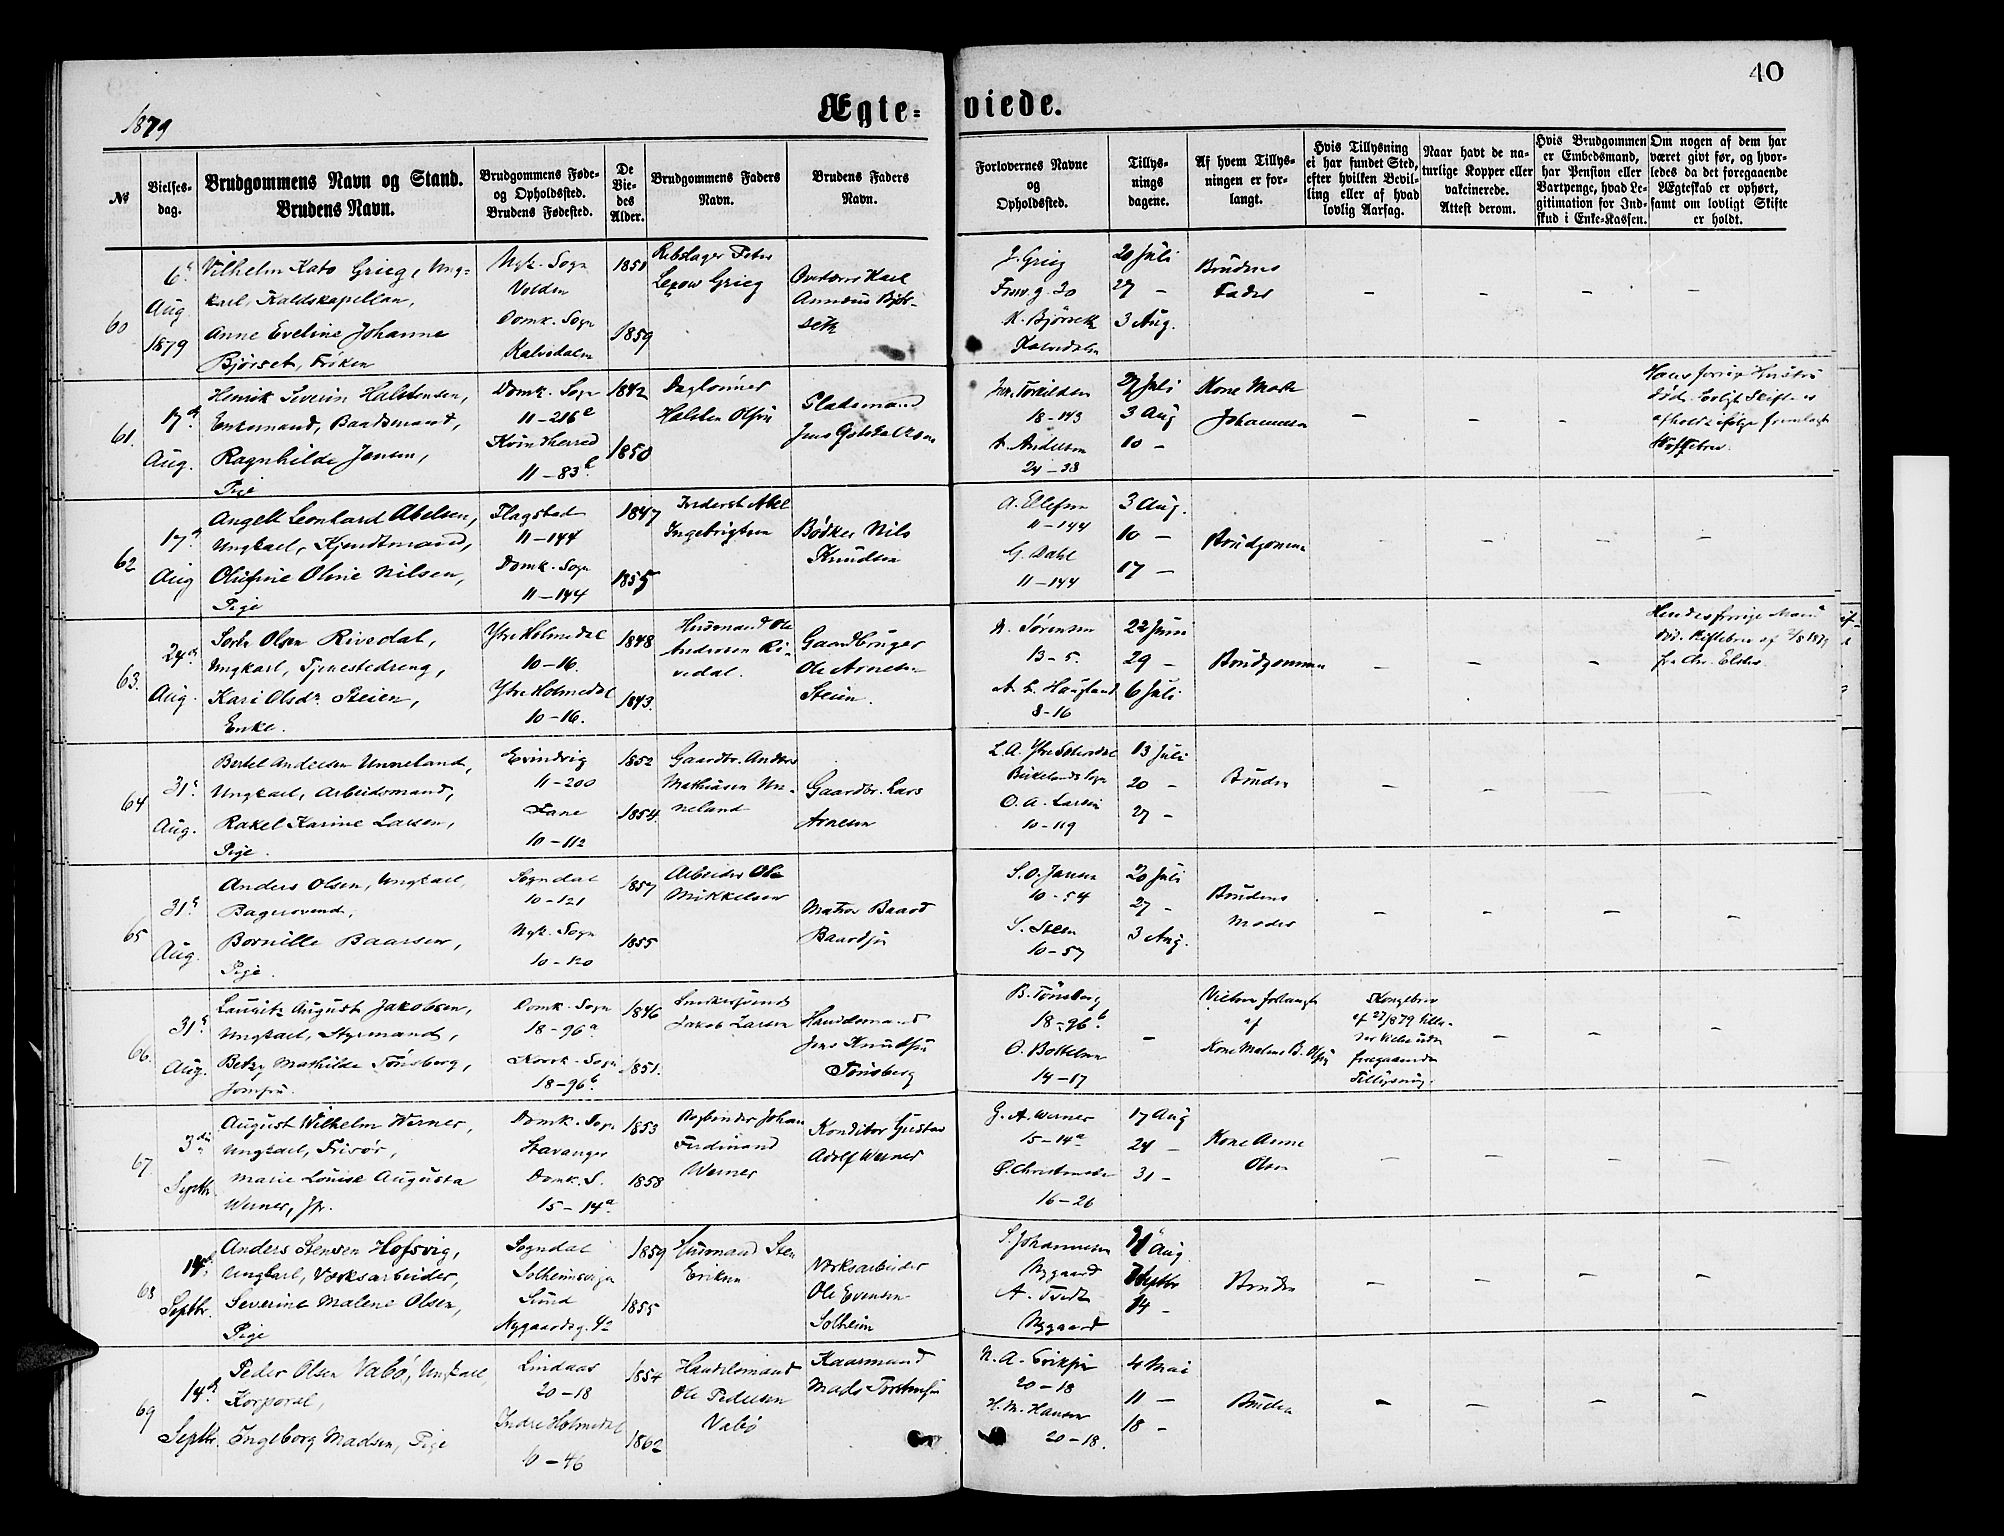 40
1879
Ægte-viede.
No
Vielses-dag.
Brudgommens Navn og Stand.
Brudens Navn.
Brudgommens Føde-
og Opholdsted.
Brudens Fødested.
De
Vie-
des
Alder.
Brudgommens Faders
Navn.
Brudens Faders
Navn.
Forlovernes Navne
og
Opholdsted.
Tillys-
nings
dagene.
Af hvem Tillys-
ningen er for-
langt.
Hvis Tillysning
ei har fundet Sted,
efter hvilken Bevil-
ling eller af hvad
lovlig Aarsag.
Naar havt de na-
turlige Kopper eller
vakcinerede.
Attest derom.
Hvis Brudgommen
er Embedsmand,
har Pension eller
Vartpenge, hvad Le-
gitimation for Ind-
skud i Enke-Kassen.
Om nogen af dem har
været givt før, og hvor-
ledes da det foregaaende
Ægteskab er ophørt,
samt om lovligt Skifte
er holdt.
60
6te
Aug
1879
Vilhelm Kato Grieg, Ung-
karl, Kaldskapellan,
Anne Eveline Johanne
Bjørset, Frøken
Nyk. Sogn
Volden
Domk. Sogn
Kalvedalen
1851
1859
Rebslager Peter
Lexow Grieg
Overlærer Karl
J. Grieg
27 Juli
K. Bjørseth
Kalvedalen
20 Juli
27 -
3 Aug.
Brudens
Fader
61.
17de
Aug.
Henrik Severin Halstensen,
Enkemand, Baadsmand,
Ragnhilde Jensen,
Pige
Domk. Sogn
11-216c
Kvindherred
11-83b
1842
1850
Dagløinner
Halsten Olsen
Pladsmand
18-143
A. Andersen
24-38
27 Juli
3 Aug
10 -
Kone Marte
Johannesen
Hans forrige Hustru
død. Lovligt Skifte er
62
17de
Aug
Angell Leonhard Abelsen,
Ungkarl, Kjendtmand,
Olufine Oline Nilsen,
Pige
Flagstad
11-144
Domk. Sogn
11-144
1847
1855
Inderst Abel
Ingebrigtsen
Bødker Nils
Knudsen
A. Ellefsen
11-144
G. Dahl
11-144
3 Aug.
10 -
17 -
Brudgommen
63.
24de
Aug.
Olsen Rivedal,
Ungkarl, Tjenestedreng,
Kari Olsdr Steien,
Enke.
Ytre Holmedal
10-16.
Ytre Holmedal
10-16.
1848
1843.
Husmand Ole
Andersen Ri-
vedal.
Gaardbruger
Ole Arnesen
Steien.
N. Sørensen
13-5.
A. L. Haugland
8-16
22 Juni
29 -
6 Juli
Brudgommen
Hendes forrige Mand
64
31te
Aug.
Bertel Andersen Unneland,
Ungkarl, Arbeidsmand,
Rakel Karine Larsen,
Pige.
Evindvig
11-200
Fane
10-112
1852
1854.
Gaardbr. Anders
Mathiasen Un-
neland
Gaardbr. Lars
Arnesen
Birkelands Sogn
O. A. Larsen
10-119
13 Juli
20 -
27 -
Bruden
65
31te
Aug.
Anders Olsen, Ungkarl,
Bagersvend,
Bornille Baarsen,
Pige.
Sogndal
10-121
Nyk. Sogn
10-120
1857
1855
Arbeider Ole
Mikkelsen
Matros Baard
Baardsen
S. O. Jansen
10-54
S. Steen
10-57
20 Juli
27 -
3 Aug.
Brudens
Moder
66.
31te
Aug.
Lauritz August Jakobsen,
Ungkarl, Styrmand,
Betzy Mathilde Tønsberg,
Jomfru.
Domk. Sogn
18-96a
Korsk. Sogn
18-96b
1846
1851.
Snedkersvend
Jakob Larsen
Handelsmand
Jens Knudsen
Tønsberg
B. Tønsberg
18-96b
14-17
Vielsen forlangt
af
Kone Malene B. Olsen
Kongebrev
foregaaende
Tillysning.
67.
3die
Septbr.
August Wilhelm Werner,
Ungkarl, Frisør,
Marie Louise Augusta
Werner, Jfr.
Domk. Sogn
Stavanger
Domk. S.
15-14a
1853
1858
Bogbinder Johan
Ferdinand
Werner
Konditor Gustav
Adolf Werner
G. A. Werner
15-14a
16-26
17 Aug
24 -
31 -
Kone Anne
Olsen
68
14de
Septbr.
Anders Stensen Hofsvig,
Ungkarl, Værksarbeider,
Severine Malene Olsen,
Pige
Sogndal
Solheimsvigen
Sund
Nygaardsg. 42
1859
1855
Husmand Sten
Eriksen
Værksarbeider
Ole Evensen
Solheim
S. Johannesen
Nygaard
A. Tvedt
Nygaard
31 Aug
7 Septbr
14 -
Bruden
69
14de
Septbr.
Peder Olsen Vabø, Ungkarl,
Korporal,
Ingeborg Madsen, Pige
Lindaas
20-18
Indre Holmedal
10-46
1854
1862
Handelsmand
Ole Pedersen
Vabø
Kaarmand
Mads Torstensen
N. A. Eriksen
20-18
H. M. Hansen
20-18.
4 Mai
11 -
18 -
Bruden